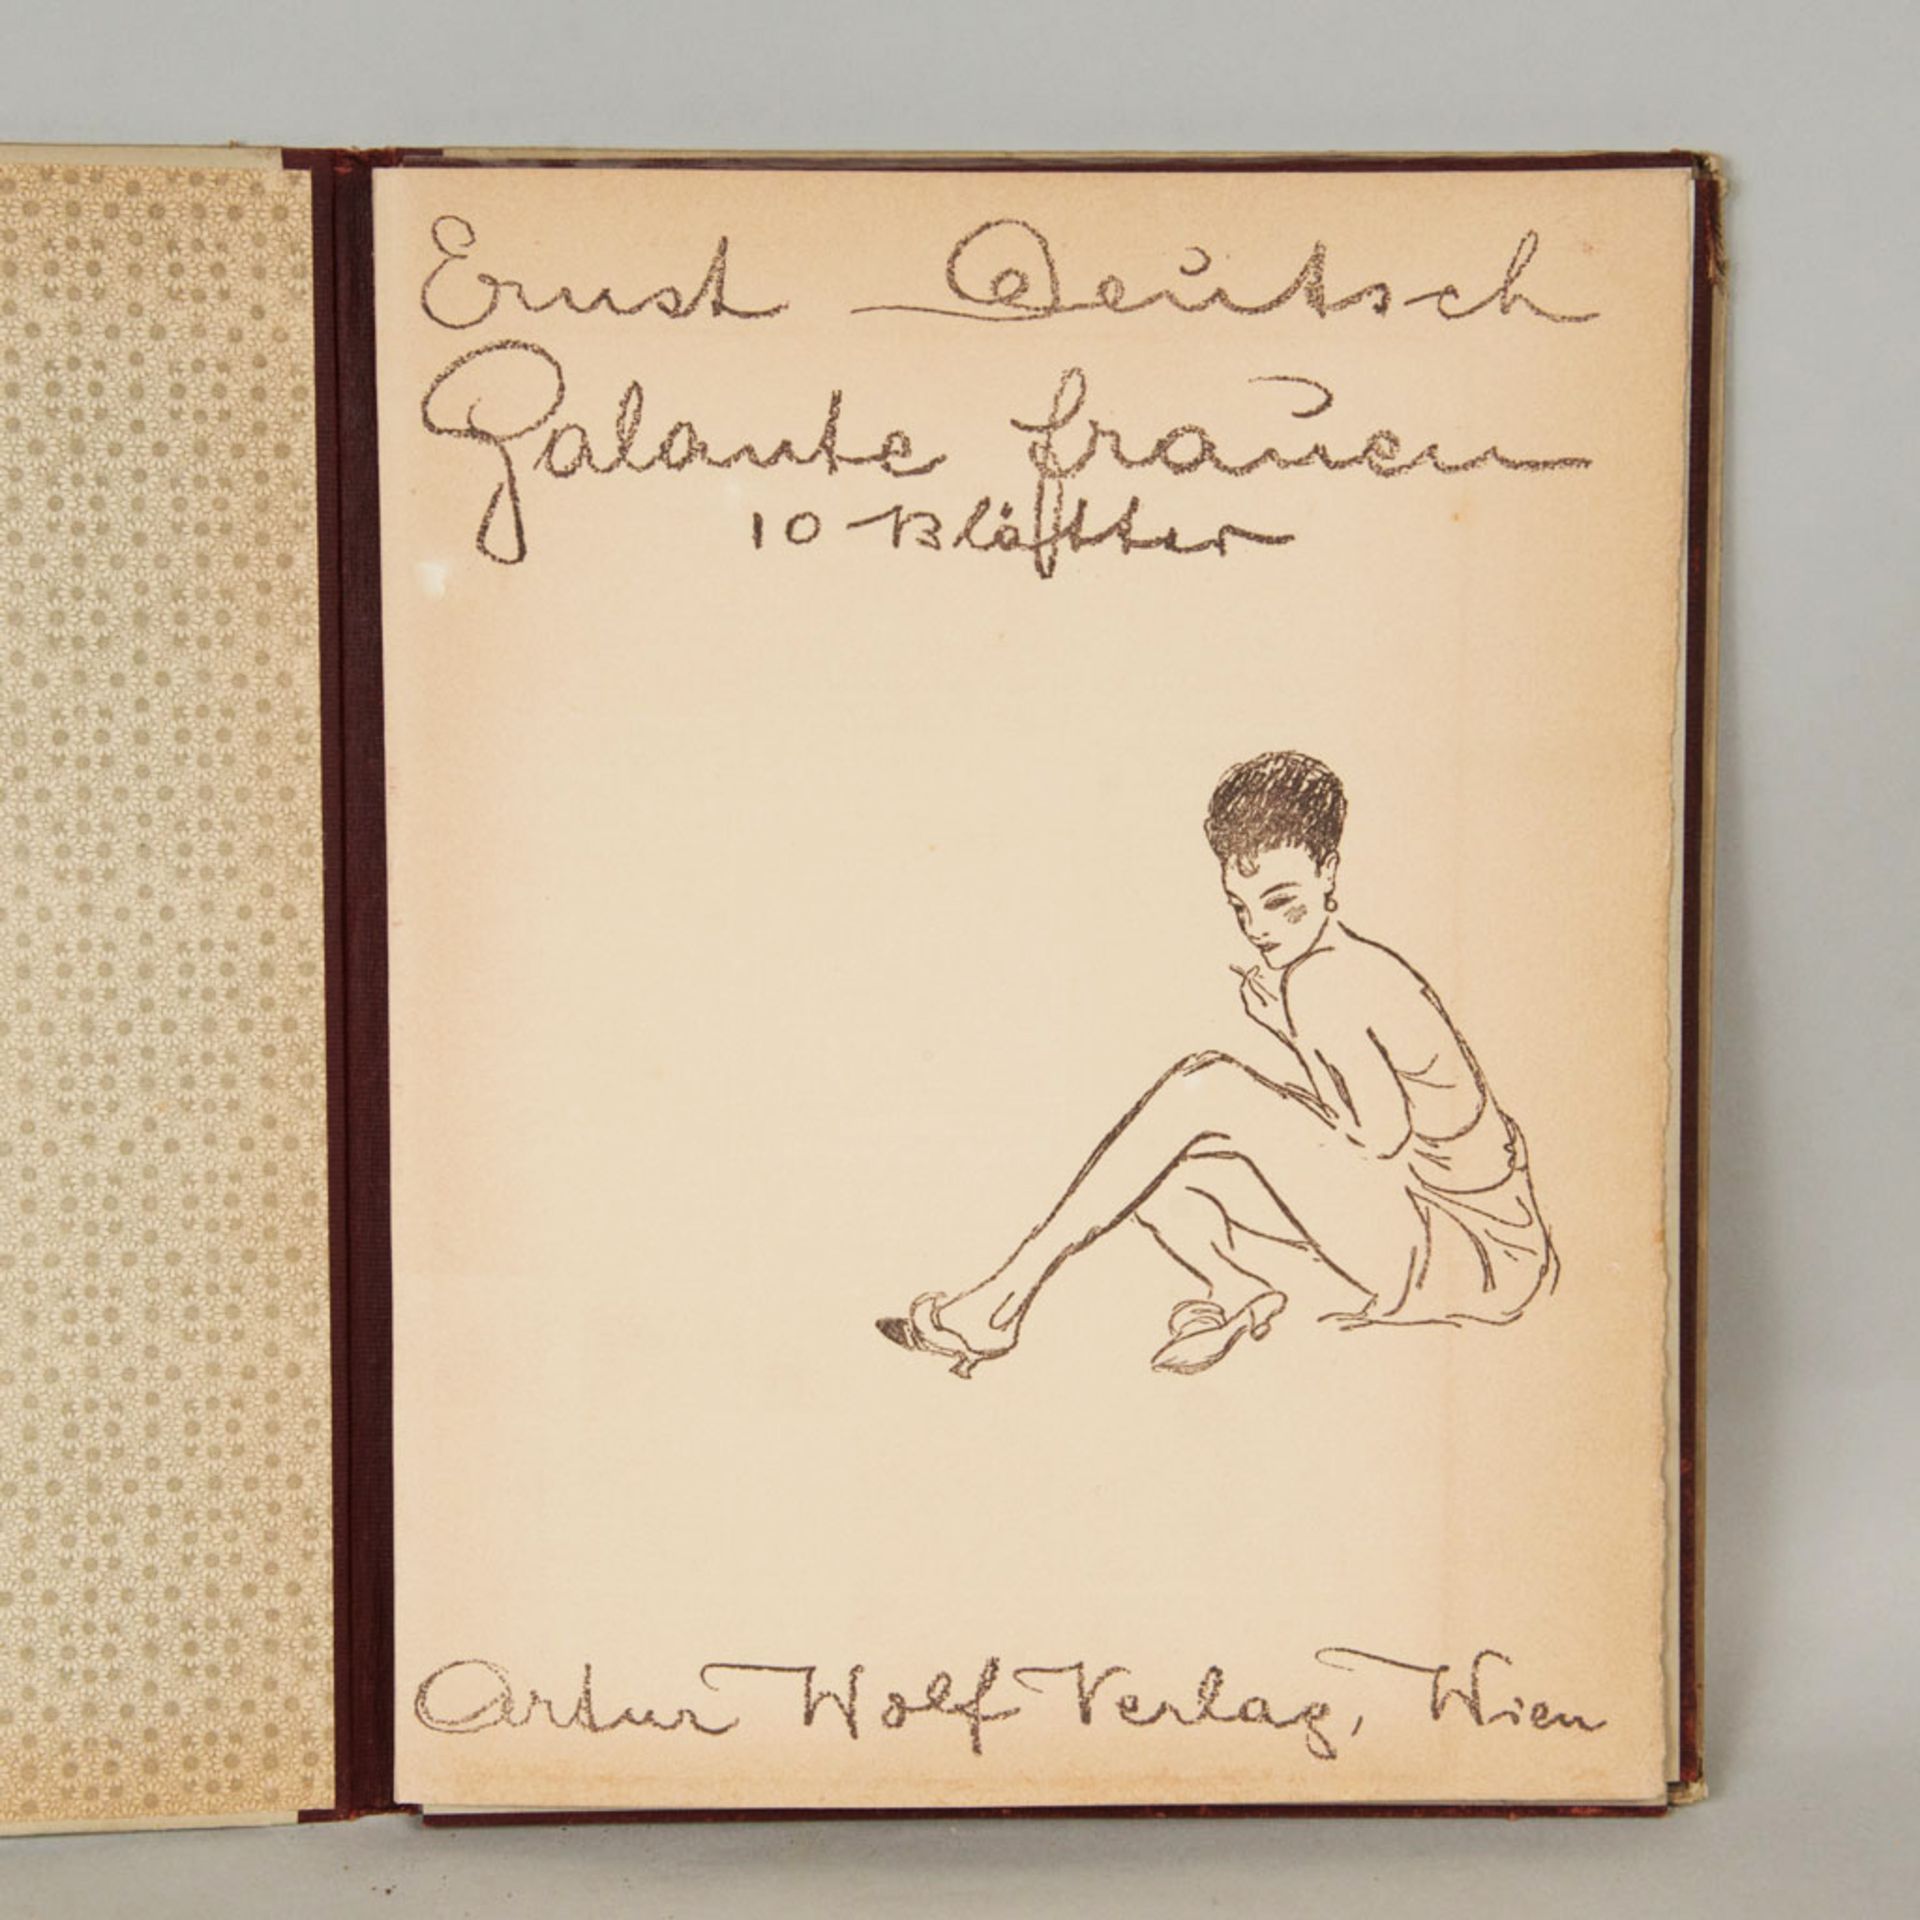 Ernst Deutsch
Galante Frauen
10 Blätter
Artur Wolf Verlag, Wien